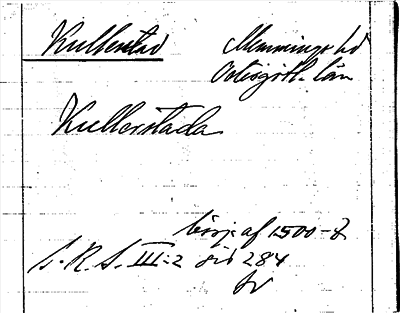 Kullerstad
Memmings hd
Östergötl. län
Kullerstada
börj. af 1500-t.
S. R. S. III:2 sid 284